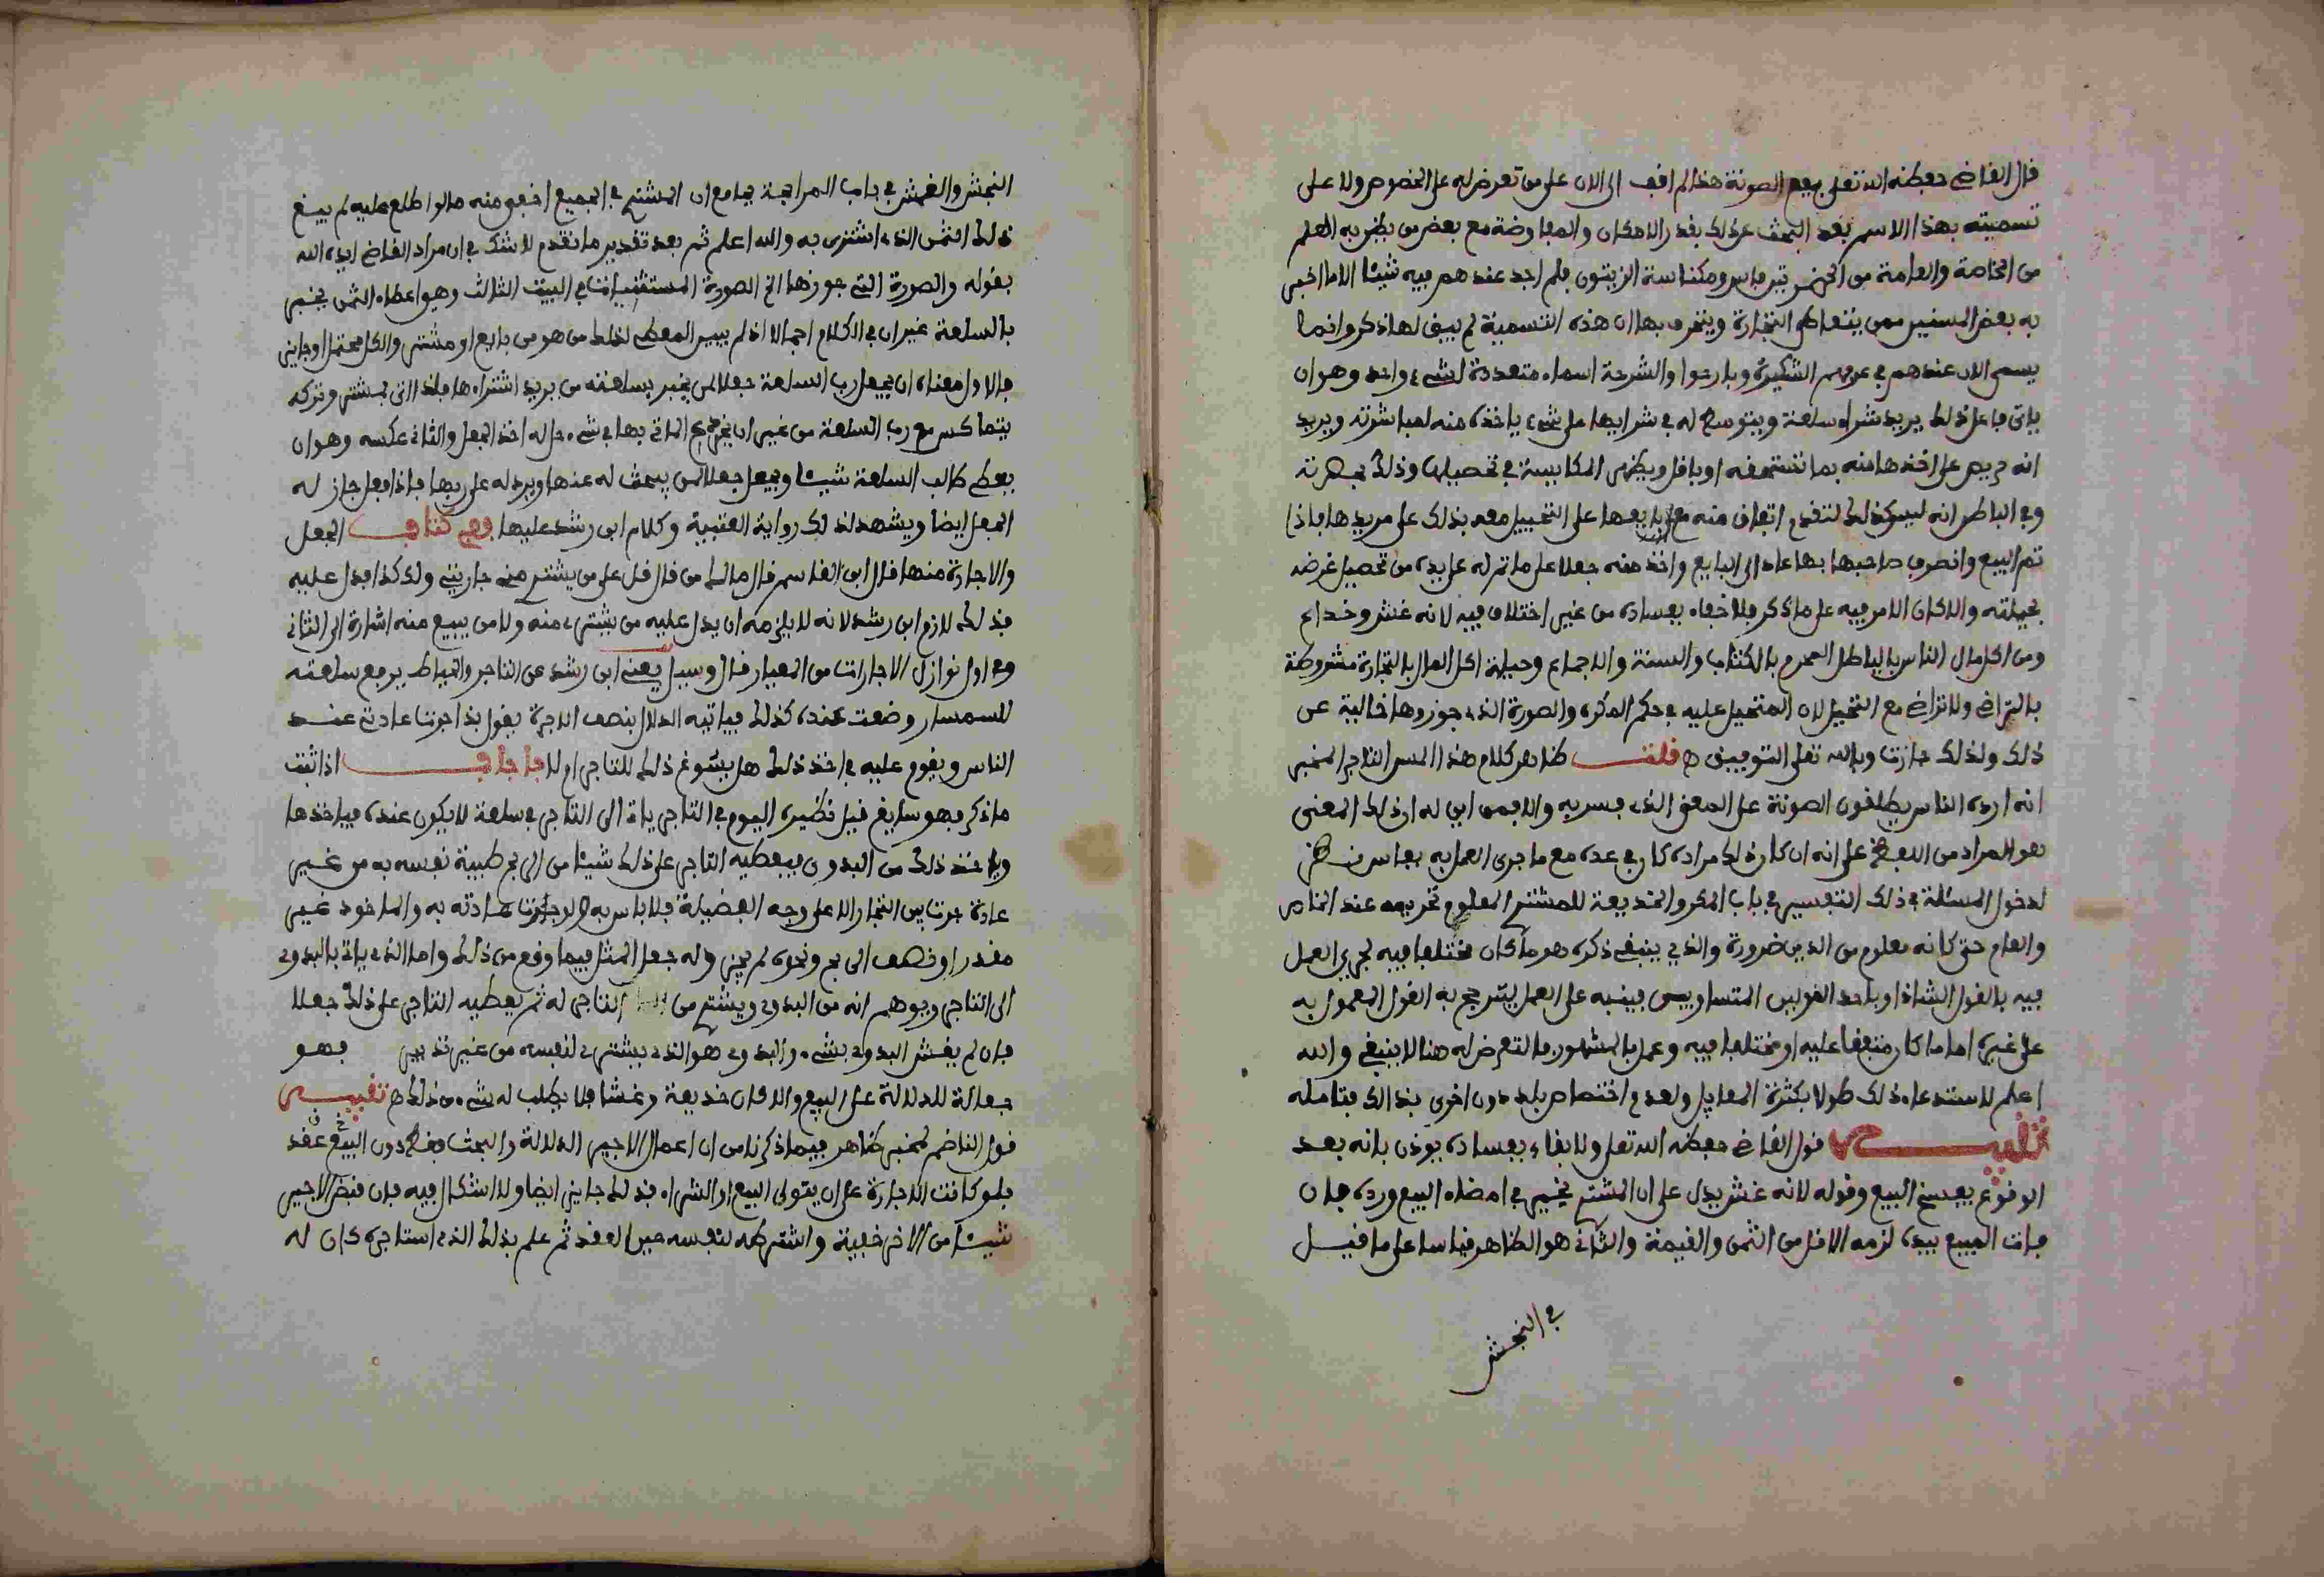 قال القاضي حفظه الله تعلى بيع الصونة هذا لم اقف الى الان على من تعرض له على الخصوص ولا على
تسميته بهذا الاسم بعد البحث عن ذلك بقدر الامكان والمفاوضة مع بعض من يظن به العلم
من الخاصة والعامة من الحضر تين فاس ومكناسة الزيتون فلم اجد عندهم فيه شيئا الا ما اخبر
به بعض المسنين ممن يتعاطى التجارة ويتحرف بها ان هذه التسمية لم يبق لها ذكر وانما
يسمى الان عندهم في عرفهم الشكيرة وبارحوا والشرحة اسماء متعددة لشيء واحد وهو ان
ياتي فاعل ذلك يريد شراء سلعة ويتوسم له في شرايها على شيء ياخذه منه لمباشرته ويريد
انه حريص على اخذها منه بما تستحقه او باقل ويظهر المكايسة في تحصيلها وذلك بحضرته
وفي الباطن انه ليس كذلك لتقدم اتفاق منه مع بايعها على التحيل معه بذلك على مريدها فاذا
تم البيع وانصرف صاحبها بها عاد الى البايع واخذ منه جعلا على ما تم له على يده من تحصيل غرضه
بحيلته والا كان الامر فيه على ما ذكر فلا خفاء بفساده من غير اختلاف فيه لانه غش وخداع
ومن اكل مال الناس بالباطل المحرم بالكتاب والسنة والاجماع وحيلة اكل المال بالتجارة مشروطة
بالتراضي ولا تراضي مع التحيل لان المتحيل عليه في حكم المكره والصورة الذي جوزوها خالية عن
ذلك ولذلك جازت وبالله تعلى التوفيق ه قلت ظاهر كلام هذا المسن التاجر المخبر
انه ادرك الناس يطلقون الصونة على المعنى الذي فسر به والا فمن اين له ان ذلك المعنى
هو المراد من اللفظ على انه ان كان ذلك مراده كان في عده مع ما جرى العمل به بفاس نظر
لدخول المسئلة في ذلك التفسير في باب المكر والخديعة للمشتري المعلوم تحريمه عند الخاص
والعام حتى كانه معلوم من الدين ضرورة والذي ينبغي ذكره هو ما كان مختلفا فيه لجري العمل
فيه بالقول الشاذ او باحد القولين المتساويين فينبه على العمل ليترجح به القول المعمول به
على غيره اما ما كان متفقا عليه او مختلفا فيه وعمل بالمشهور فالتعرض له هنا لا ينبغي والله
اعلم لاستدعاء ذلك طولا بكثرة المسايل ولعدم اختصاص بلد دون اخرى بذالك فتامله
تنبيه قول القاضي حفظه الله تعلى ولا خفاء بفساده يوذن بانه بعد
الوقوع يفسخ البيع وقوله لانه غش يدل على ان المشتري يخير في امضاء البيع ورده فان
فات المبيع بيده لزمه الاقل من الثمن والقيمة والثاني هو الظاهر قياسا على ما قيل
في النجش
النجش والغش في باب المرابحة بجامع ان المشتري في الجميع اخفي منه ما لو اطلع عليه لم يبغ
ذلك الثمن الذي اشترى به والله اعلم ثم بعد تقدير ما تقدم لا شك في ان مراد القاضي ايده الله
بقوله والصورة التي جوزها الخ الصورة المستثنات في البيت الثالث وهو اعطاء الثمن يخبر
بالسلعة غير ان في الكلام اجمالا اذ لم يبين المعطي لذلك من هو من بايع او مشتر والكل محتمل او جايز
فالاول معناه ان يجعل رب السلعة جعلا لمن يخبر بسلعته من يريد اشتراءها فاذا اتى بمشتر وتركه
يتماكس مع رب السلعة من غير ان يخرجهم الماتي بها في شيء حل له اخذ الجعل والثاني عكسه وهو ان
يعطي طالب السلعة شيئا ويجعل جعلا لمن يبحث له عنها ويرد له على ربها فاذا فعل جاز له
الجعل ايضا ويشهد لذلك رواية العتبية وكلام ابن رشد عليها وفي كتاب الجعل
والاجارة منها قال ابن القاسم قال مالك من قال قل على من يشتري مني جاريتي ولك كذا فدل عليه
فذلك لازم ابن رشد لانه لا يلزمه ان يدل عليه من يشتري منه ولا من يبيع منه اشارة الى الثاني
وفي اول نوازل الاجارات من المعيار قال وسيل يعني ابن رشد عن التاجر والخياط يرفع سلعته
للسمسار وضعت عنده كذلك فياتيه الدلال بنصف الاجرة يقول بذا جرت عادتي عند
الناس ويقوم عليه في اخذ ذلك هل يسوغ ذلك للتاجر ام لا فاجاب اذا ثبت
ما ذكر فهو سايغ قيل نظيره اليوم في التاجر ياتي الى التاجر في سلعة لا يكون عنده فياخذها
وياخذ ذلك من البدوي فيعطيه التاجر على ذلك شيئا من الربح طيبة نفسه به من غير
عادة جرت بين التجار الا على وجه الفضيلة فلا باس به ولو جرت عادته به والماخوذ غير
مقدر او نصف الربح ونحوه لم يجز وله جعل المثل فيما وقع من ذلك واما الذي ياتي بالبدوي
الى التاجر ويوهم انه من البدوي ويشتري من التاجر له ثم يعطيه التاجر على ذلك جعلا
فان لم يغش البدوي بشيء والبدوي هو الذي يشتري لنفسه من غير تدبير فهو
جعالة للدلالة على البيع والا كان خديعة وغشا فلا يطلب له شيء من ذلك ه تنبيه
قول الناظم لمخبر ظاهر فيما ذكرنا من ان اعمال الاجير الدلالة والبحث فقط دون البيع عقد
فلو كانت الاجارة على ان يتولى البيع او الشراء فذلك جايز ايضا ولا اشكال فيه فان قبض الاجير
شيئا من الاخر خفية واشترطه لنفسه حين العقد ثم علم بذلك الذي استاجره كان له